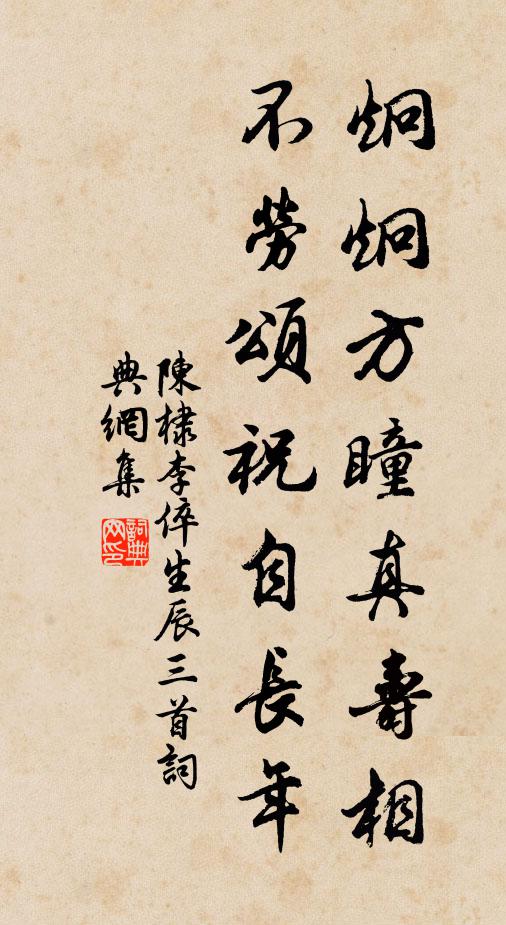 炯炯方瞳真壽相
不勞頌祝自長年
陳棣李倅生辰三首詞
典網集
詞典網印